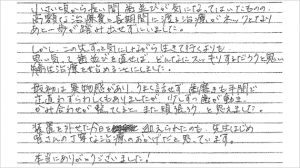 小さい頃から長い間 歯並びが気になってはいたものの、
高額な治療費と長期間に渡る治療がネックとなり
あと一歩が踏み出せずにいました。
しかし、この先ずっと気にしながら生きて行くよりも
思い切って歯並びを直せば、どんなにスッキリするだろうと思い
治療を始めることにしました。
最初は異物感があり、うまく話せず 歯磨きも手間で
くじけそうにもなりましたが 少しずつ歯が動き、
かみ合わせが整ってくると、また頑張ろう と思えました。
装置を外せた今日を 迎えられたのも、先生はじめ
皆さんの丁寧な治療のおかげだと思っています。
本当にありがとうございました。